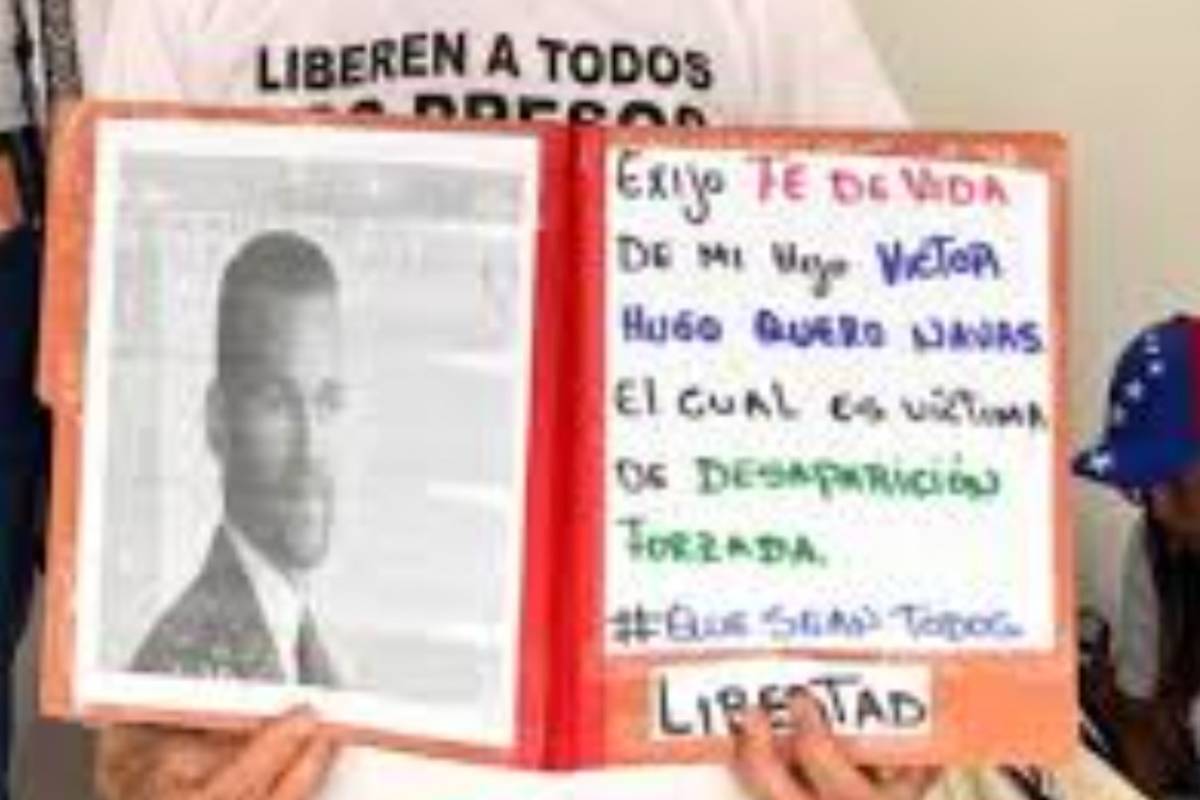 LIBEREN A TODOS
PRESOS
Exijo FE DE VIDA
DE MI Hijo VICTOR
HUGO QUERO NAVAS
El CUAL ES VÍCTIMA
DE DESAPARICIÓN
FORZADA.
#QUE SEAN TODOS
LIBERTAD